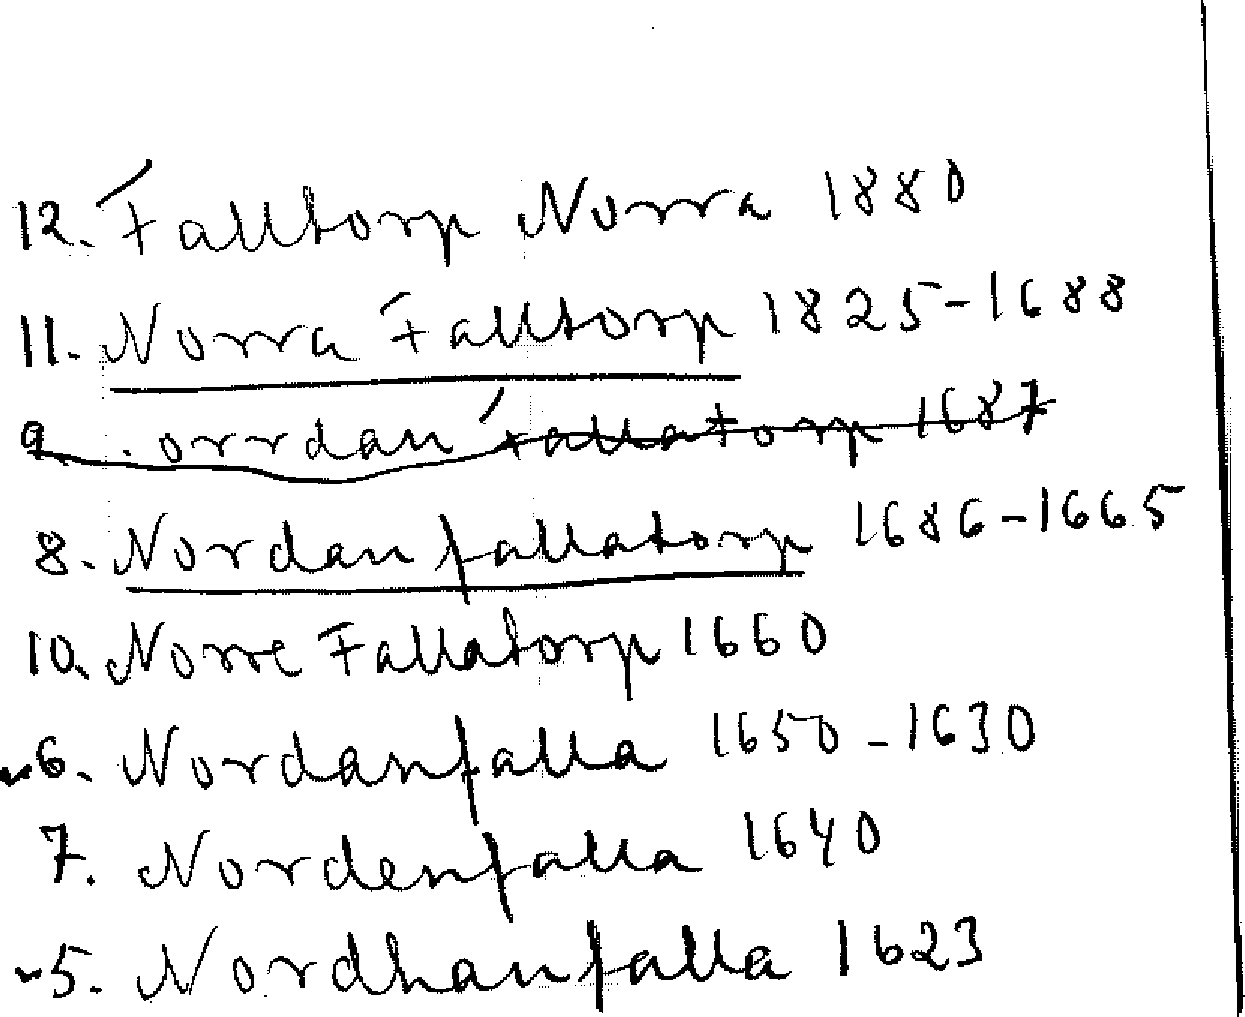 12. Falltorp Norra 1880
11. Norra Falltorp 1825-1688
9. orrdan fallatorp 1687
8. Nordanfallatorp 1686-1665
10. Norre Fallatorp 1660
6. Nordanfalla 1650-1630
7. Nordenfalla 1640
5. Nordhanfalla 1623